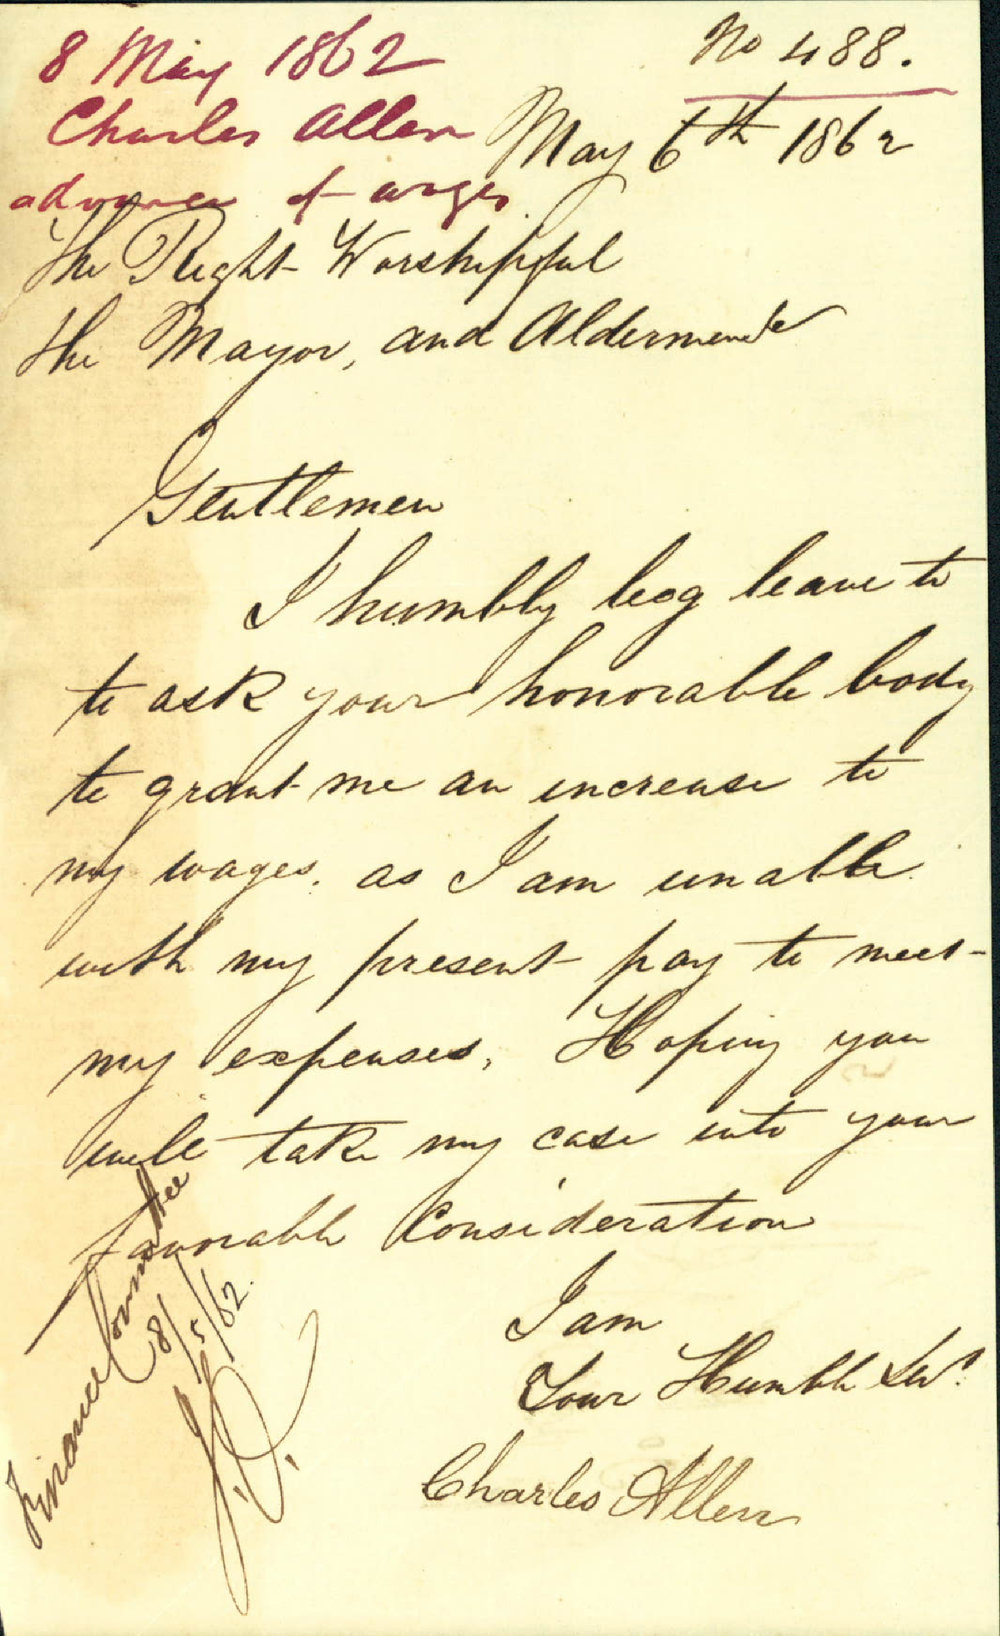 8 May 1862
Charles Allen
advance of wages
No 488.
May 6th 1862
The Right Worshipful
the Mayor, and Aldermen &c
Gentlemen
I humbly beg leave to
to ask your honorable body
to grant me an increase to
my wages. as I am unable
with my present pay to meet
my expenses, Hoping you
will take my case into your
favorable Consideration
I am
Your Humble Svt.
Charles Allen
Finance Committee
8/5/62.